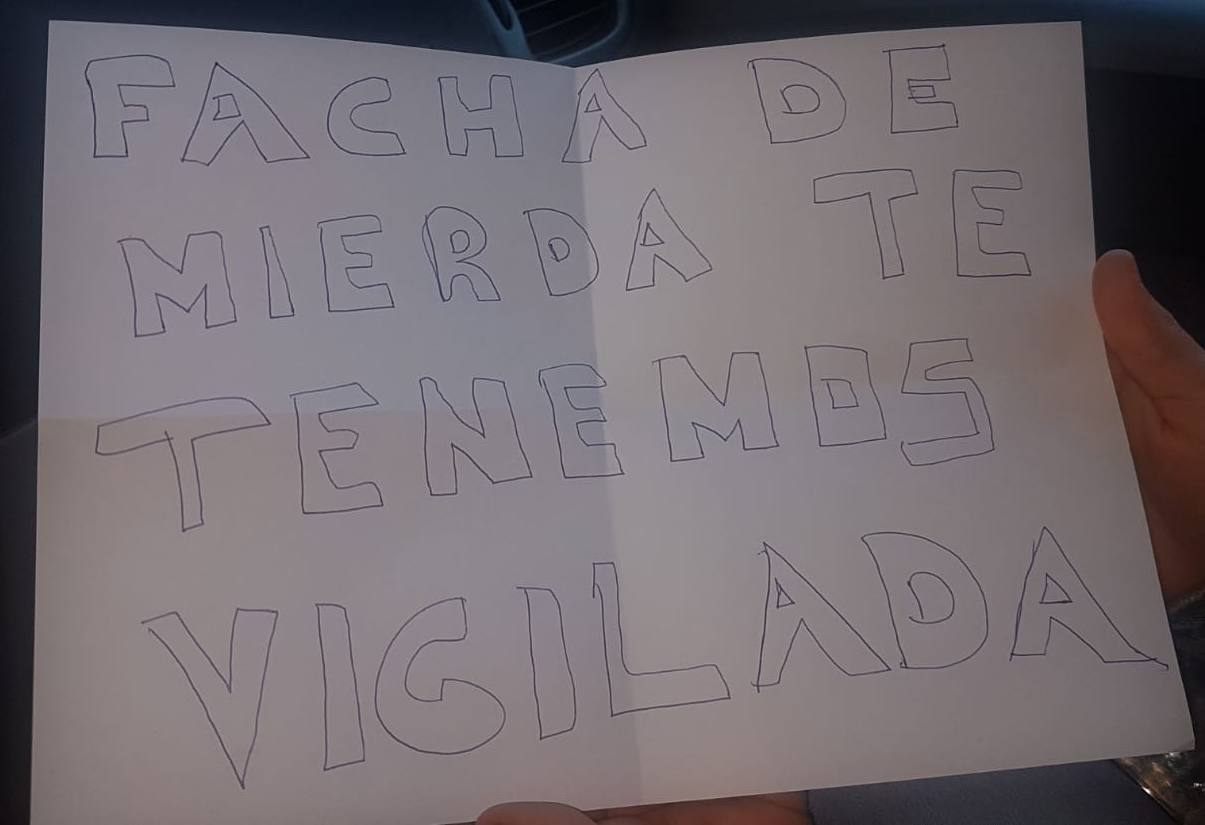 FACHA DE
MIERDA TE
TENEMOS
VIGILADA